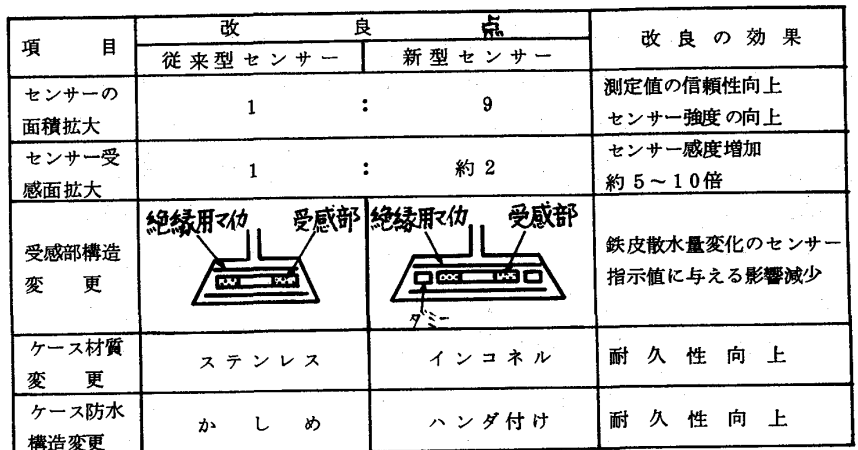 項 目
改 良 点
改良の効果
従来型センサー
新型センサー
センサーの
面積拡大
1 : 9
測定値の信頼性向上
センサー強度の向上
センサー受
感面拡大
1 : 約2
センサー感度増加
約5～10倍
受感部構造
変 更
絶縁用マイカ
受感部
絶縁用マイカ
受感部
ダミー
鉄皮散水量変化のセンサー
指示値に与える影響減少
ケース材質
変 更
ステンレス
インコネル
耐久性向上
ケース防水
構造変更
かしめ
ハンダ付け
耐久性向上